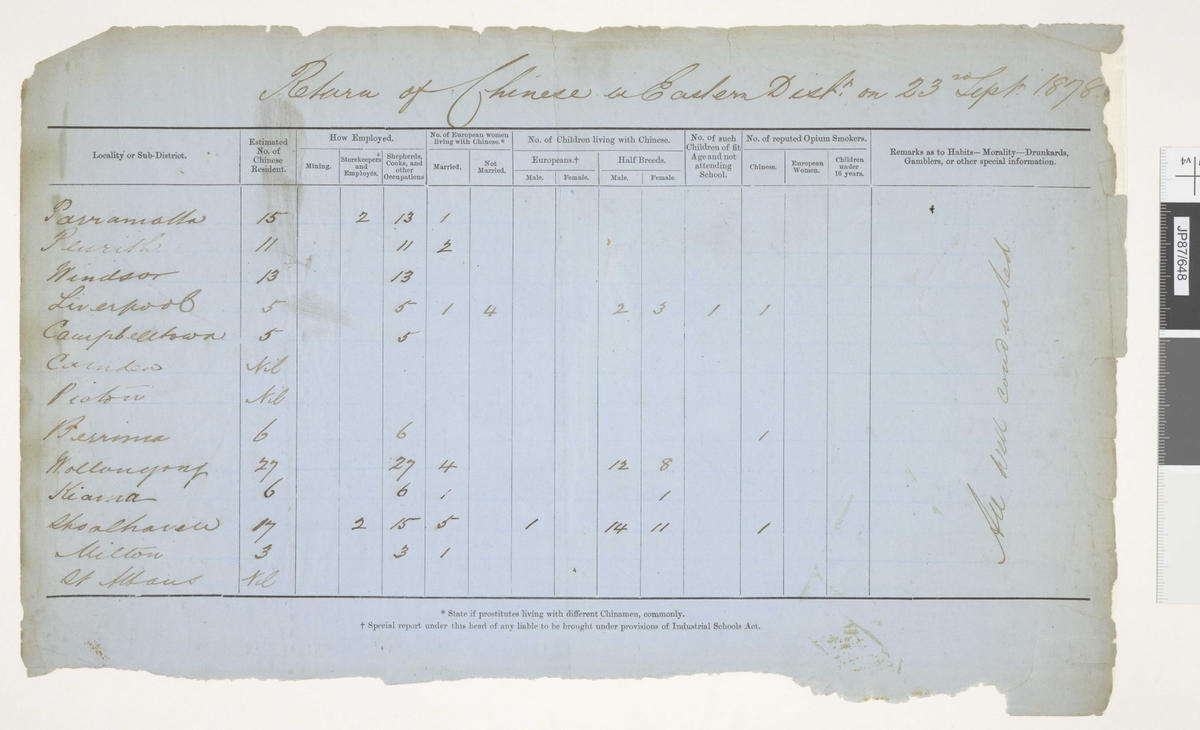 Return of Chinese in Eastern Distr. on 23rd Sept 1878.
Locality or Sub-District. Estimated No. of Chinese Resident. How Employed. No. of European women living with Chinese.* No. of Children living with Chinese. No. of such Children of fit Age and not attending School. No. of reputed Opium Smokers. Remarks as to Habits—Morality—Drunkards, Gamblers, or other special information.
Mining. Storekeepers and Employés.* Shepherds, Cooks, and other Occupations Married. Not Married. Europeans.† Half Breeds. Chinese. European Women. Children under 16 years.
Male. Female. Male. Female.
Parramatta 15 2 13 1
Penrith 11 11 2
Windsor 13 13
Liverpool 5 5 1 4 2 3 1 1
Campbelltown 5 5
Camden Nil
Picton Nil
Berrima 6 6 1
Wollongong 27 27 4 12 8
Kiama 6 6 1 1
Shoalhaven 17 2 15 5 1 14 11 1
Milton 3 3 1
St Albans Nil
All well conducted
* State if prostitutes living with different Chinamen, commonly.
† Special report under this head of any liable to be brought under provisions of Industrial Schools Act.
JP87/648